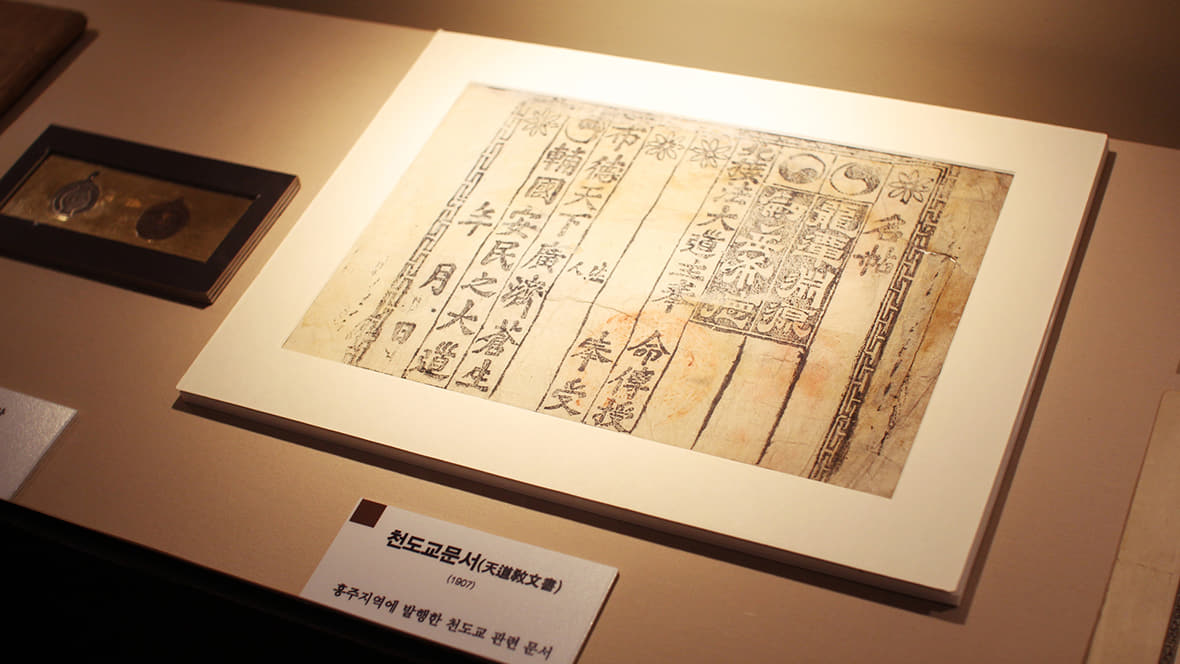 名帖
北接
大道主奉
命傳授
奉受
生人
布德天下廣濟蒼生
輔國安民之大道
年 月 日
천도교문서(天道敎文書)
(1907)
홍주지역에 발행한 천도교 관련 문서